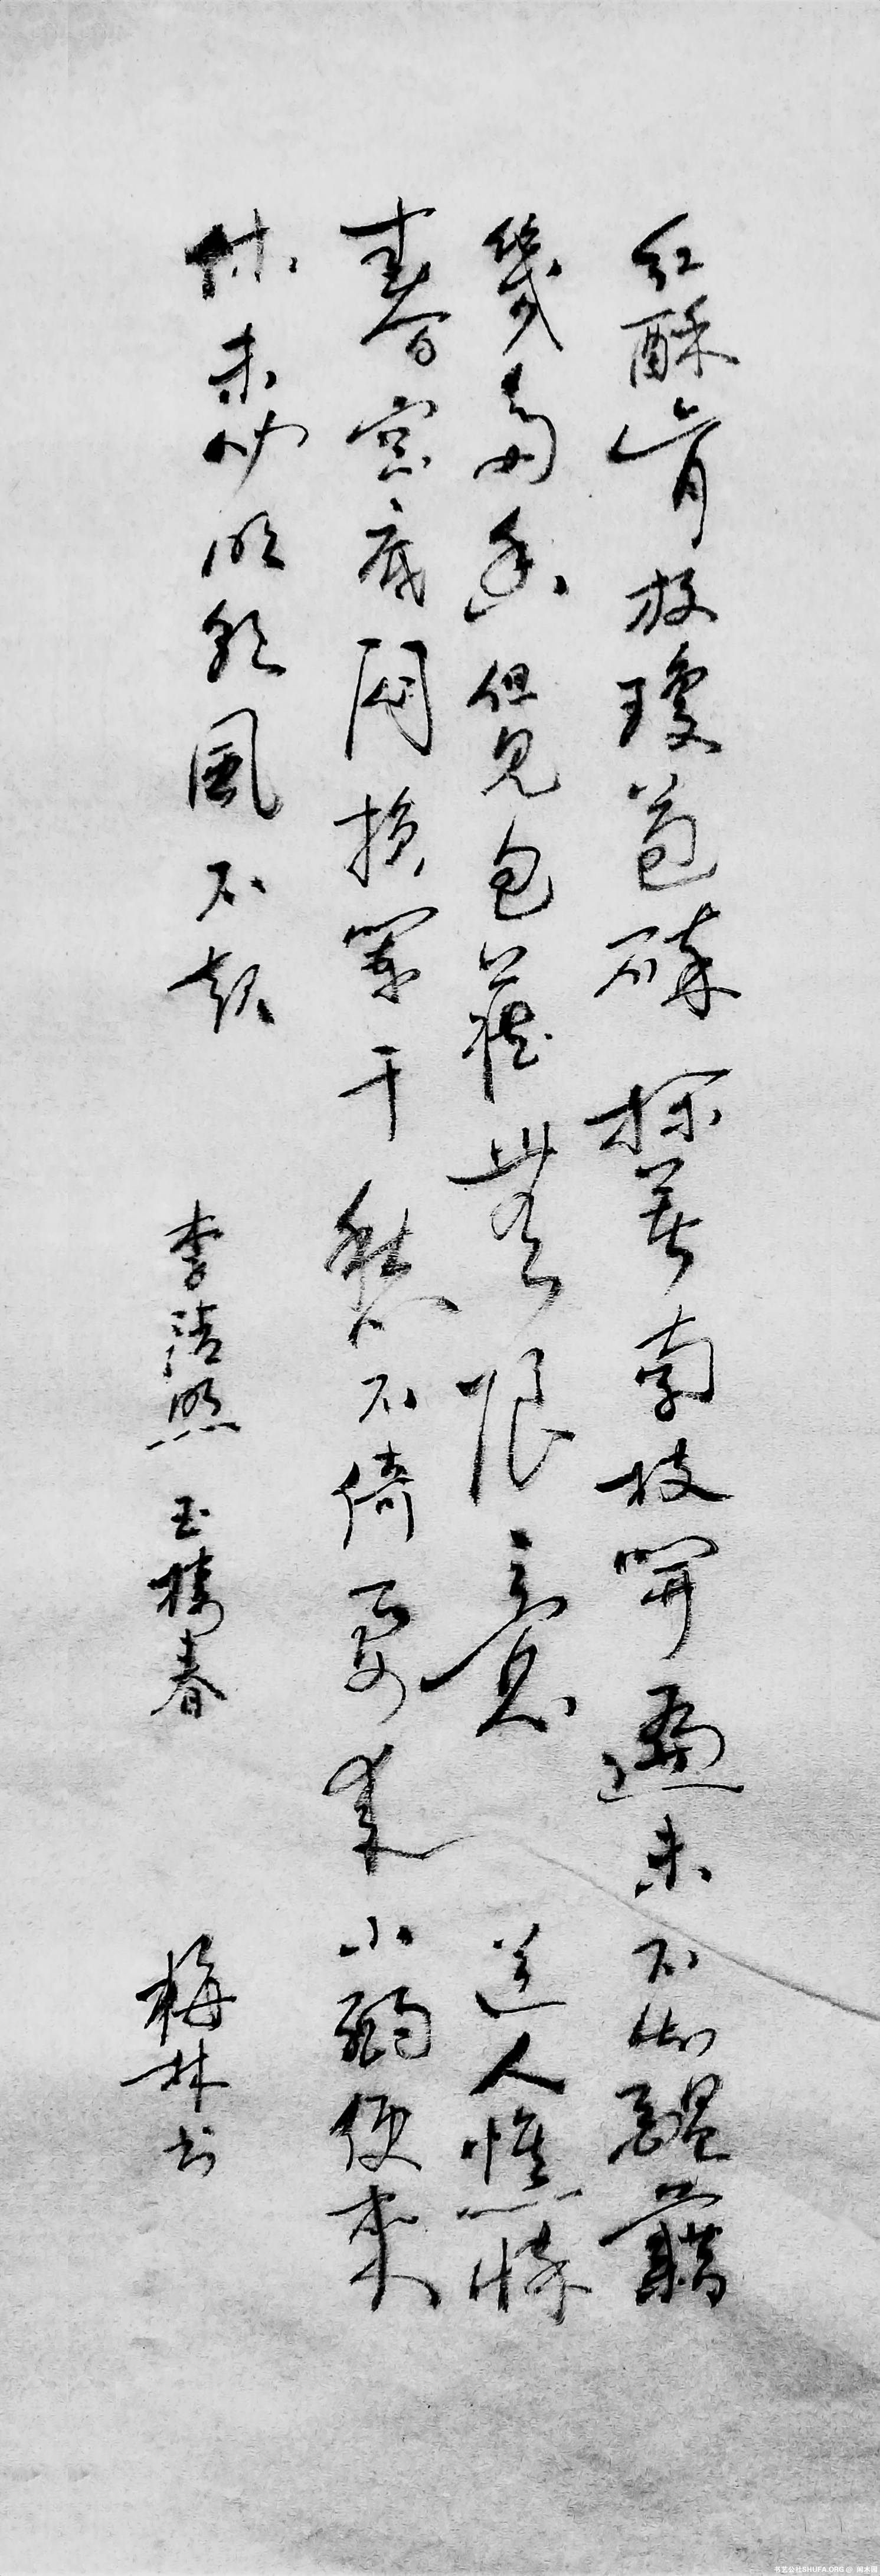 红酥肯放瓊苞碎探著南枝開遍未不知醖藉
幾多香但見包藏無限意道人憔悴
春窓底闷损闌干愁不倚要来小酌便來
休未必明朝風不起 李清照 玉樓春 梅林书
书艺公社SHUFA.ORG @